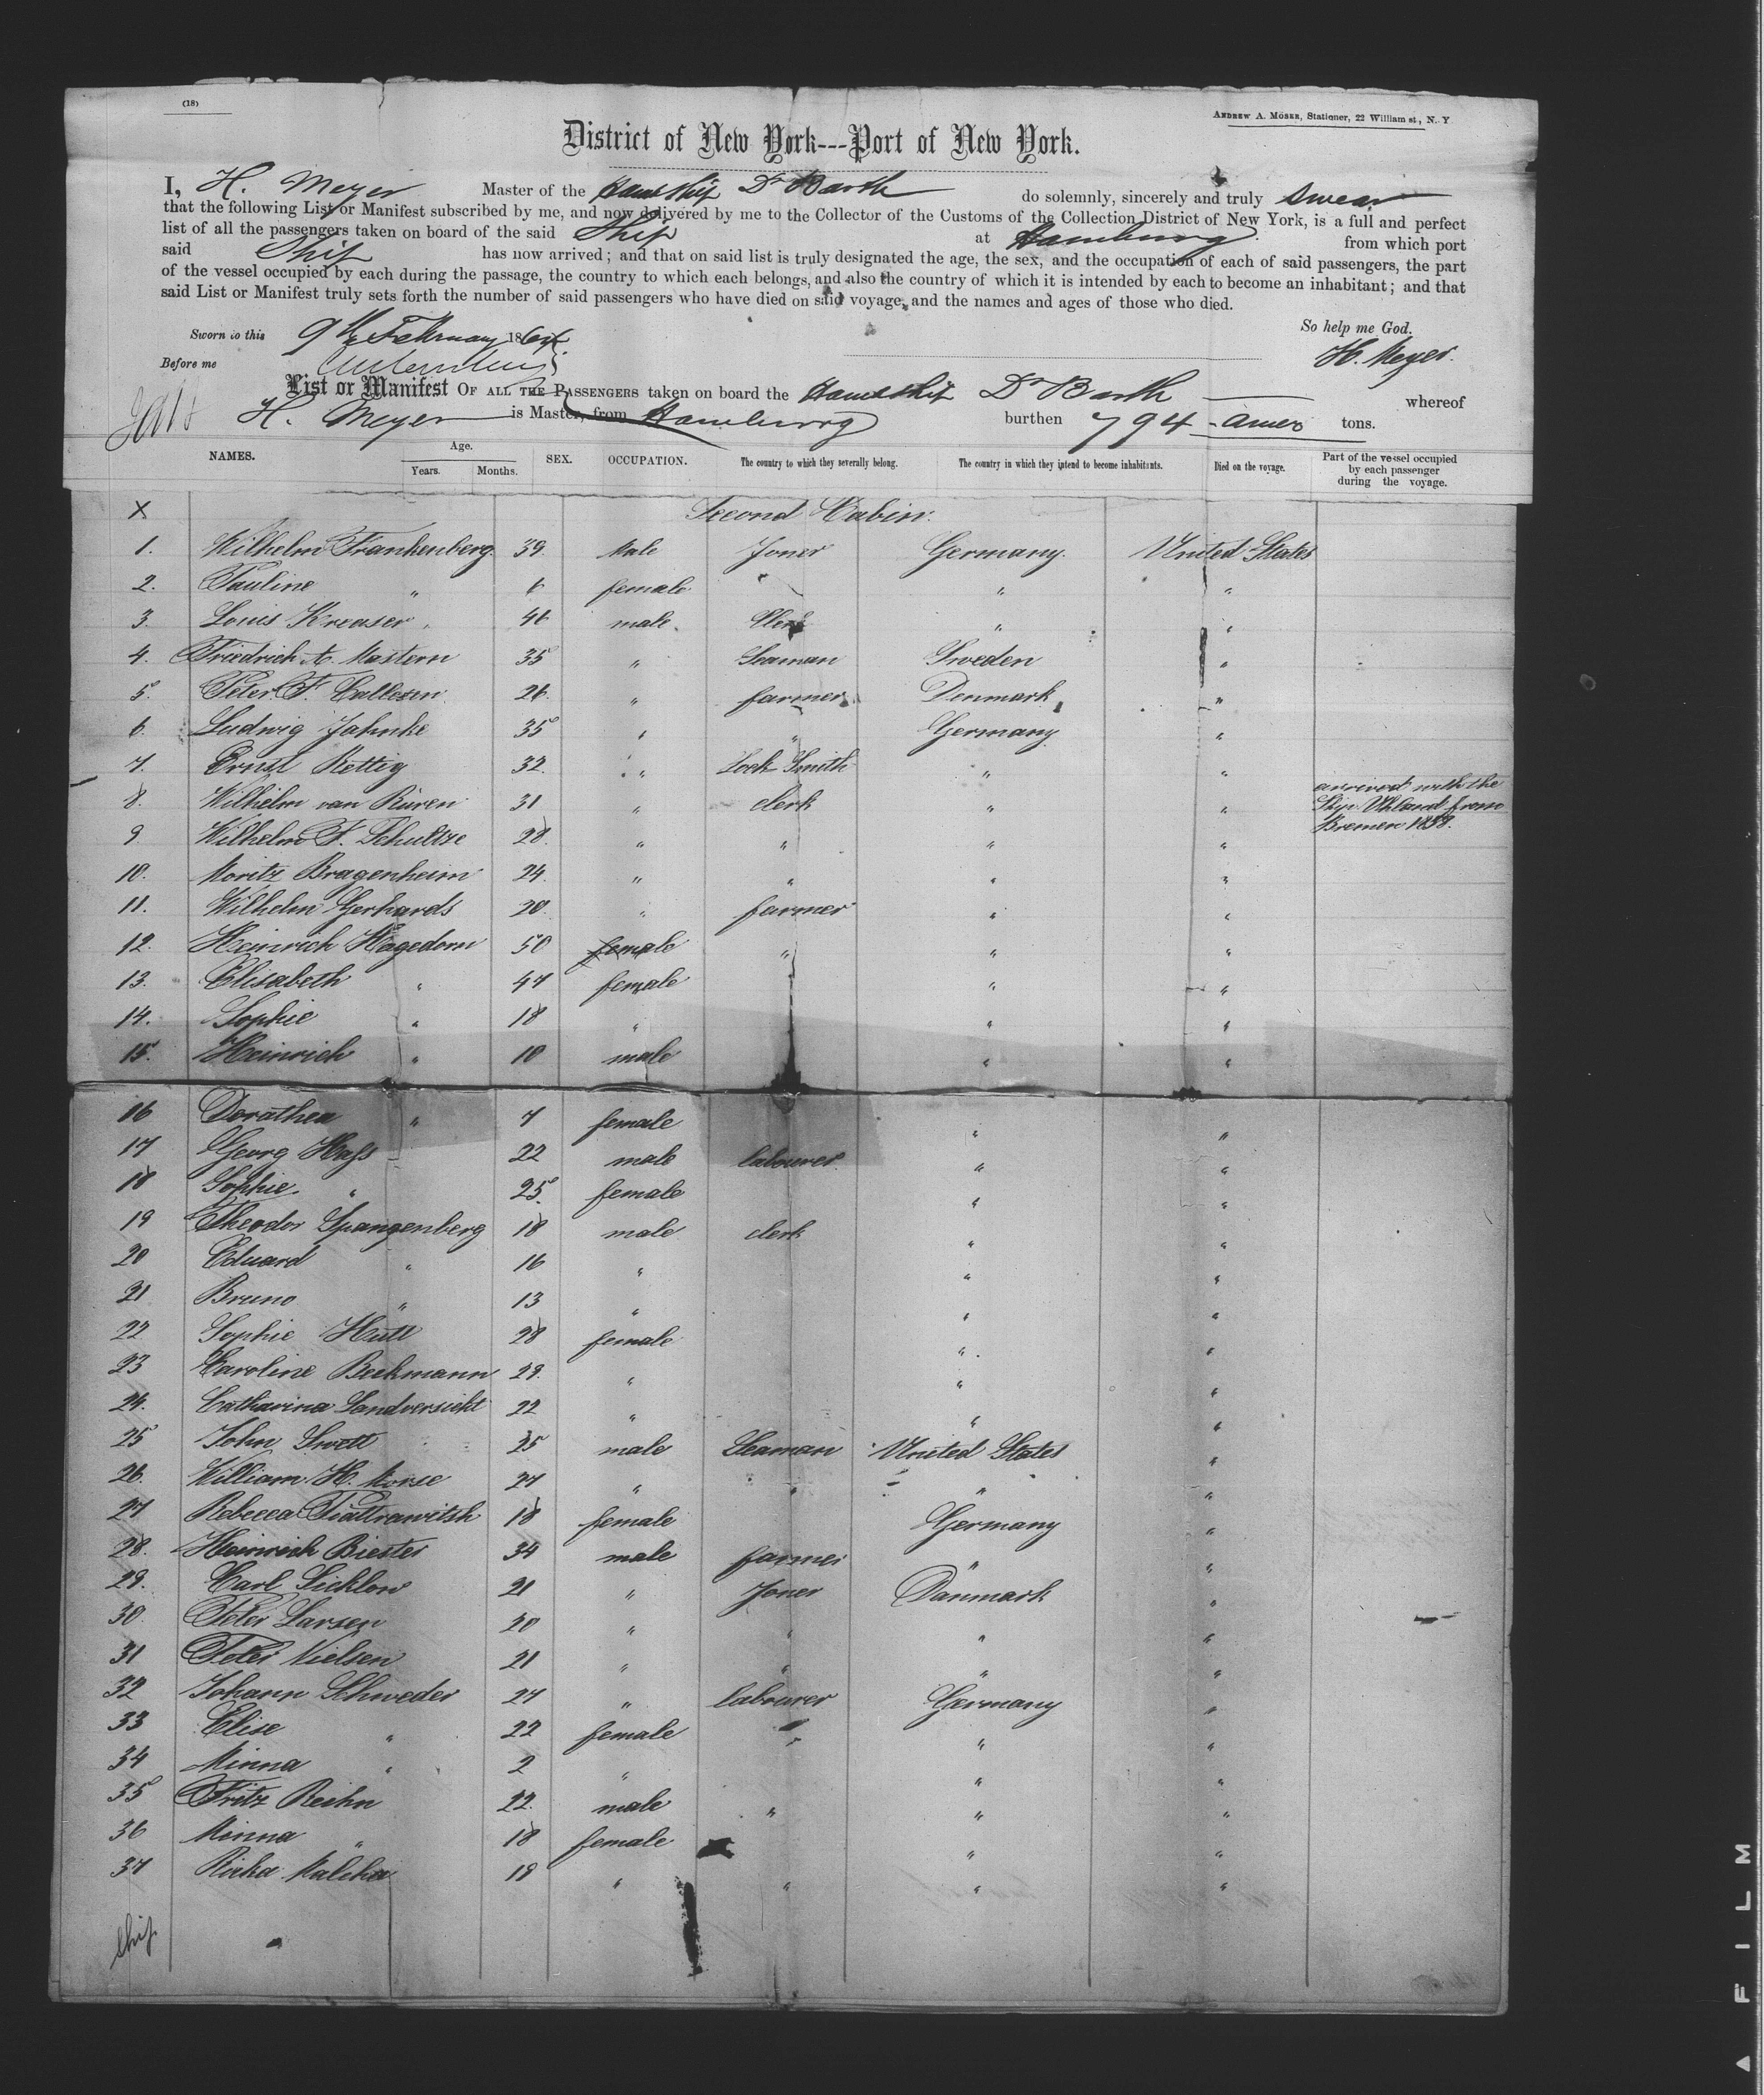 (18)
ANDREW A. MÖSER, Stationer, 22 William st., N. Y
District of New York---Port of New York.
I, H. Meyer Master of the Hamb Ship Dr Barth do solemnly, sincerely and truly swear
that the following List or Manifest subscribed by me, and now delivered by me to the Collector of the Customs of the Collection District of New York, is a full and perfect
list of all the passengers taken on board of the said Ship at Hamburg from which port
said Ship has now arrived; and that on said list is truly designated the age, the sex, and the occupation of each of said passengers, the part
of the vessel occupied by each during the passage, the country to which each belongs, and also the country of which it is intended by each to become an inhabitant; and that
said List or Manifest truly sets forth the number of said passengers who have died on said voyage, and the names and ages of those who died.
So help me God.
Sworn to this 9th February 1864
H. Meyer.
Before me
List or Manifest OF ALL THE PASSENGERS taken on board the Hamb Ship Dr Barth whereof
H. Meyer is Master, from Hamburg burthen 794 amer tons.
NAMES. Age. Years. Months. SEX. OCCUPATION. The country to which they severally belong. The country in which they intend to become inhabitants. Died on the voyage. Part of the vessel occupied by each passenger during the voyage.
X Second Cabin.
1. Wilhelm Frankenberg. 39. Male Joner Germany. United States
2. Pauline " 6 female " "
3. Louis Kreaser 46 male. Clerk " "
4. Friedrich A. Mastern 35 " Seaman Sweden "
5. Peter F. Callesen 26. " farmer Denmark "
6. Ludwig Jahnke 35 " " Germany "
7. Ernst Rettig 32. " Lock Smith " "
8. Wilhelm van Büren 31 " clerk " " arrived with the Ship Uhland from Bremen 1858.
9. Wilhelm F. Schultze 28. " " " "
10. Moritz Bragenheim 24. " " " "
11. Wilhelm Gerhards 20. " farmer " "
12. Heinrich Hagedorn 50 female " " "
13. Elisabeth " 47 female " "
14. Sophie " 18 " " "
15. Heinrich " 10 male " "
16 Dorathea " 7 female " "
17 Georg Hass 22 male labourer " "
18 Sophie " 25. female " "
19 Theodor Spangenberg 18 male clerk " "
20 Eduard " 16 " " "
21 Bruno " 13 " " "
22 Sophie Hütt 28 female " "
23 Caroline Beckmann 29. " " "
24. Catharina Landversicht 22 " " "
25 John Swett 25 male Seaman United States "
26. William H. Morse 27 " " " "
27 Rebecca 18 female Germany "
28. Heinrich Biester 34 male farmer " "
29. Carl Sicklow 21 " Joner Danmark "
30. Peter Larsen 20 " " " "
31 Peter Nielsen 21 " " " "
32 Johann Schweder 27 " labourer Germany "
33 Elise " 22 female " " "
34 Minna " 2 " " "
35 Fritz Reehn 22. male " " "
36 Minna " 18 female " "
37 Rieka Malcha 19 " " " "
Ship
FILM